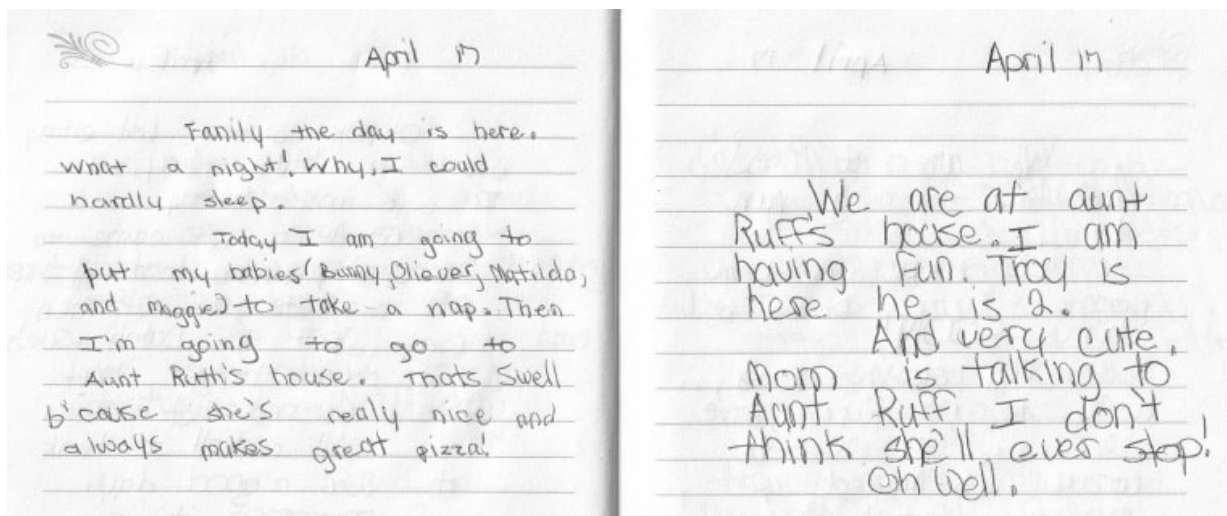 April 17
Fanily the day is here.
What a night! Why, I could
hardly sleep.
Today I am going to
put my babies (Bunny, Oliever, Matilda,
and maggie) to take a nap. Then
I'm going to go to
Aunt Ruth's house. Thats Swell
b'cause she's really nice and
always makes great pizza!
April 17
We are at aunt
Ruffs house. I am
having fun. Troy is
here he is 2.
And very cute.
mom is talking to
Aunt Ruff I don't
think she'll ever stop!
Oh Well.